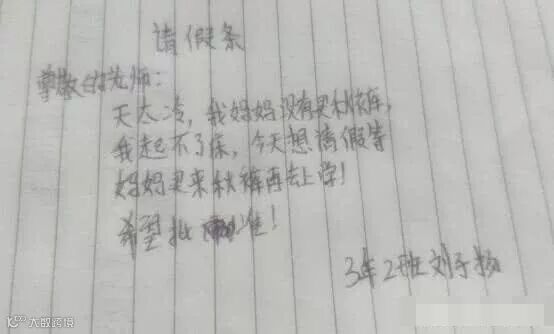 请假条
尊敬的老师:
天太冷,我妈妈没有买秋裤,
我起不了床,今天想请假等
妈妈买来秋裤再去上学!
希望批准!
3年2班刘子扬
大数跨境